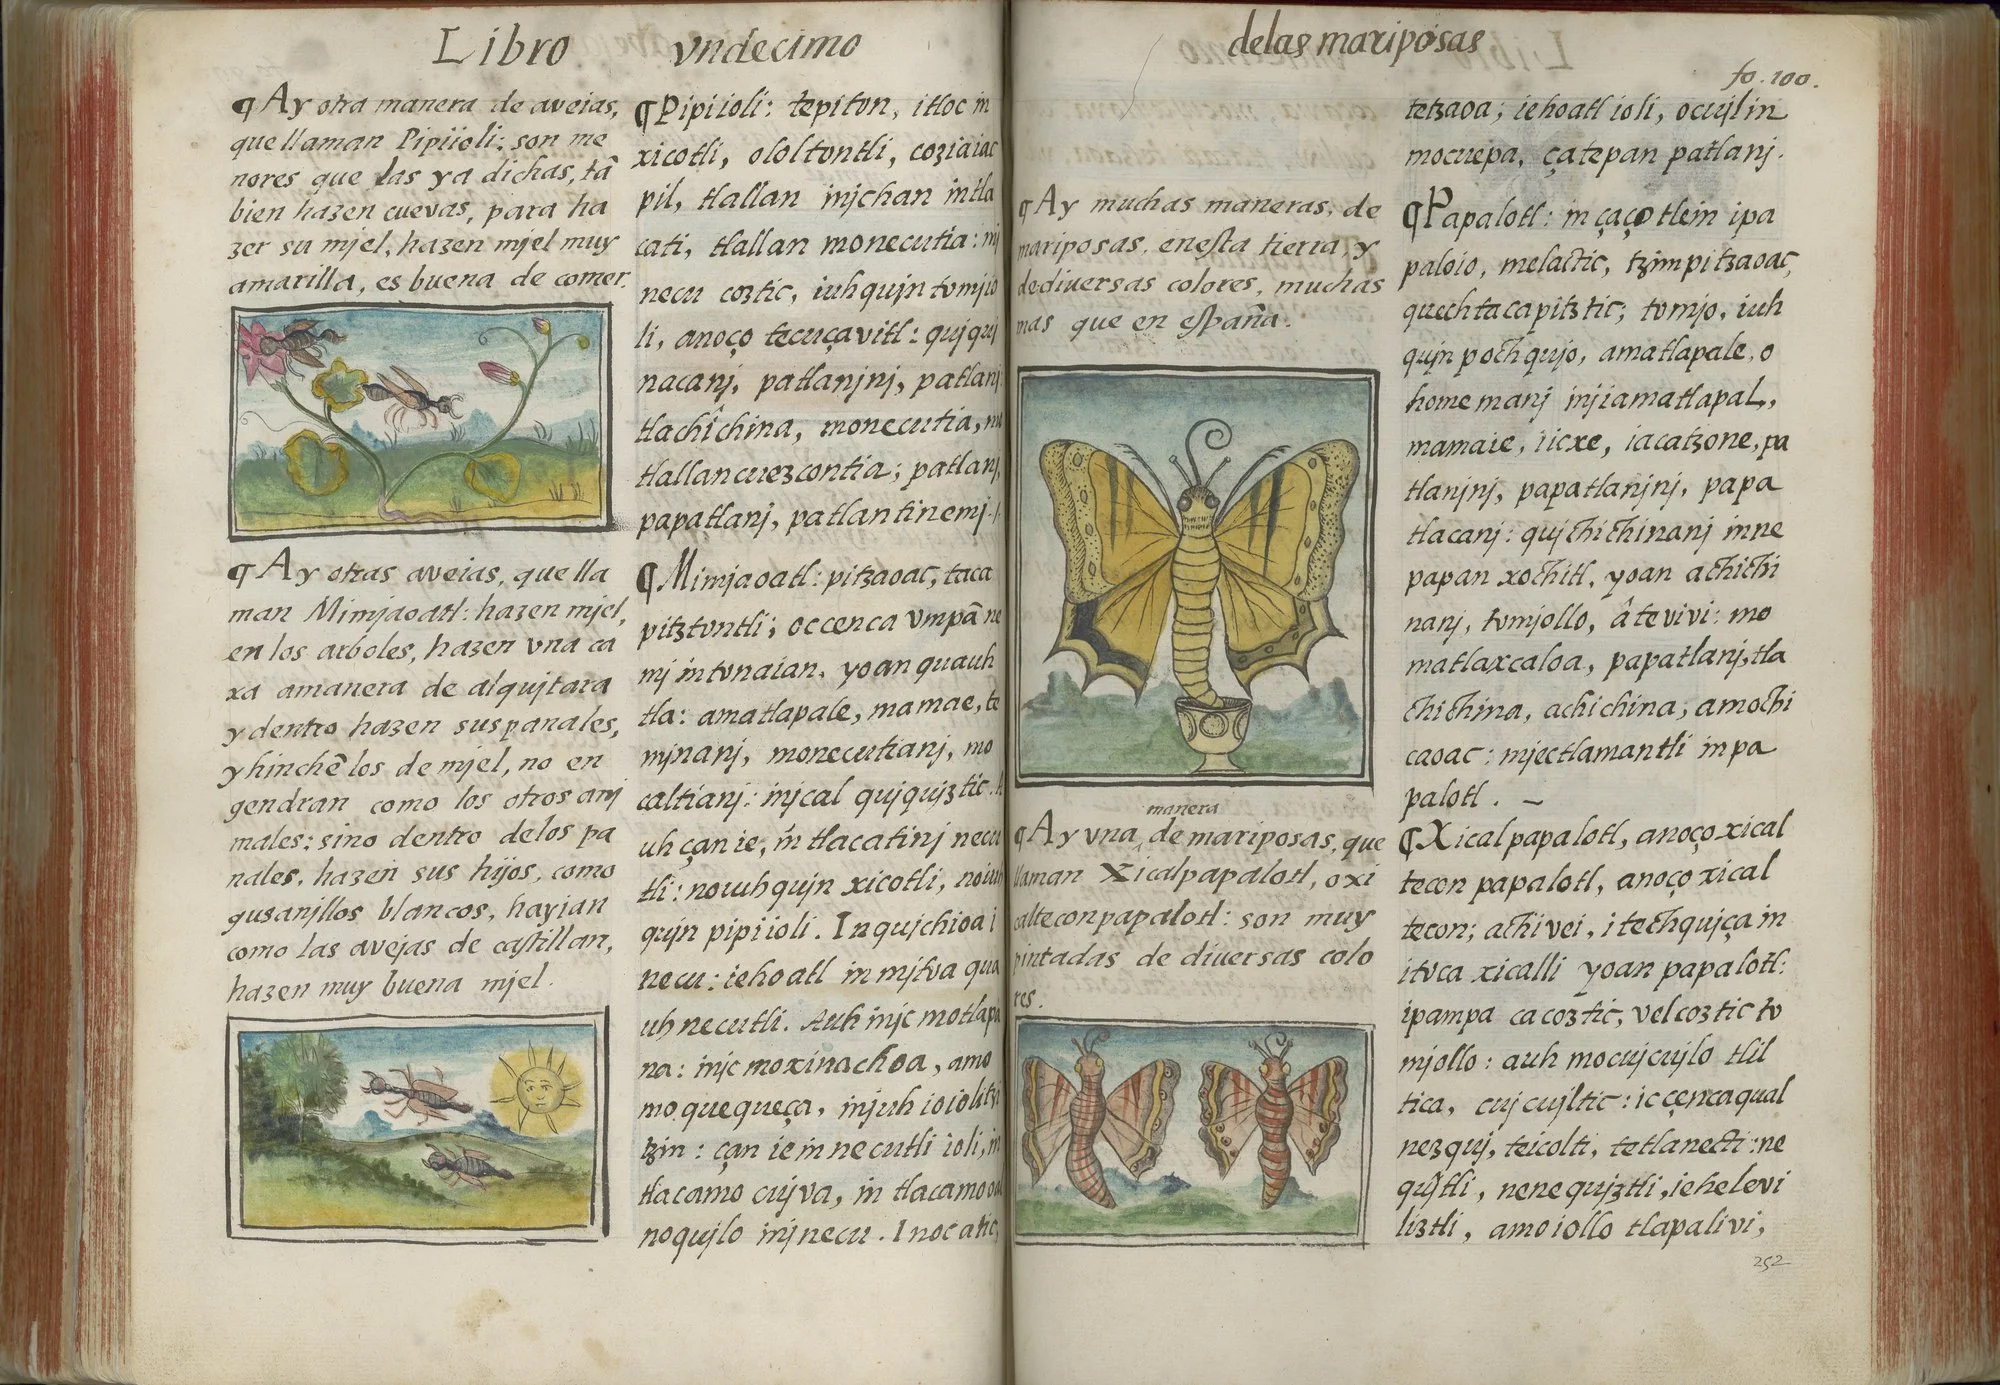 Libro vndecimo
¶ Ay otra manera de aveias,
que llaman Pipiioli; son me
nores que las ya dichas, tã
bien hazen cuevas, para ha
zer su mjel, hazen mjel muy
amarilla, es buena de comer.
¶ Ay otras aveias, que lla
man Mimjaoatl: hazen mjel,
en los arboles, hazen vna ca
xa amanera de alqujtara
y dentro hazen sus panales,
y hinchẽ los de mjel, no en
gendran como los otros anj
males; sino dentro de los pa
nales, hazen sus hijos, como
gusanjllos blancos, hazian
como las avejas de castillan,
hazen muy buena mjel.
¶ Pipiioli: tepiton, itloc in
xicotli, ololtontli, coziaiac
pil, tlallan injchan intla
cati, tlallan monecutia: inj
necu coztic, iuhqujn tomjio
li, anoço tecuçavitl: qujquj
nacanj, patlanjnj, patlanj
tlachîchina, monecutia,
tlallancuezcontia; patlanj,
papatlanj, patlantinemj.
¶ Mimjaoatl: pitzaoac, taca
pitztontli; occenca vmpã ne
mj in tonaian, yoan quauh
tla: amatlapale, mamae, te
mjnanj, monecutianj, mo
caltianj: injcal qujqujztic.
uh çan ie, in tlacatinj necu
tli: noiuhqujn xicotli, noiuh
qujn pipiioli. In qujchioa i
necu: iehoatl in mjtoa qua
uhnecutli. Auh injc motlapa
na: injc moxinachoa, amo
mo quequeça, injuh ioiolitzi
tzin: çan ie in necutli ioli, in
tlacamo cujva, in tlacamo oa
noqujlo injnecu. In ocatic,
delas mariposas
fo. 100.
¶ Ay muchas maneras, de
mariposas. enesta tierra, y
dediuersas colores, muchas
mas que en españa.
manera
¶ Ay vna, de mariposas, que
llaman Xicalpapalotl, o xi
calteconpapalotl: son muy
pintadas de diuersas colo
res.
tetzaoa; iehoatl ioli, ocujlin
mocuepa, çatepan patlanj.
¶ Papalotl: in çaço tlein ipa
paloio, melactic, tzimpitzaoac,
quechtacapitztic; tomjo, iuh
qujn pochqujo, amatlapale, o
home manj injiamatlapal,
mamaie, iicxe, iacatzone, pa
tlanjnj, papatlanjnj, papa
tlacanj: qujchichinanj inne
papan xochitl, yoan achichi
nanj, tomjollo, âtevivi: mo
matlaxcaloa, papatlanj, tla
chichina, achichina, amochi
caoac: mjectlamantli in pa
palotl. —
¶ Xicalpapalotl, anoço xical
tecon papalotl, anoço xical
tecon; achi vei, itechqujça in
itoca xicalli yoan papalotl:
ipampa ca coztic, vel coztic to
mjollo: auh mocujcujlo tlil
tica, cujcujltic: ic cenca qual
nezquj, teicolti, tetlanecti: ne
qujztli, nenequjztli, ieheleví
liztli, amoiollo tlapalivi,
252